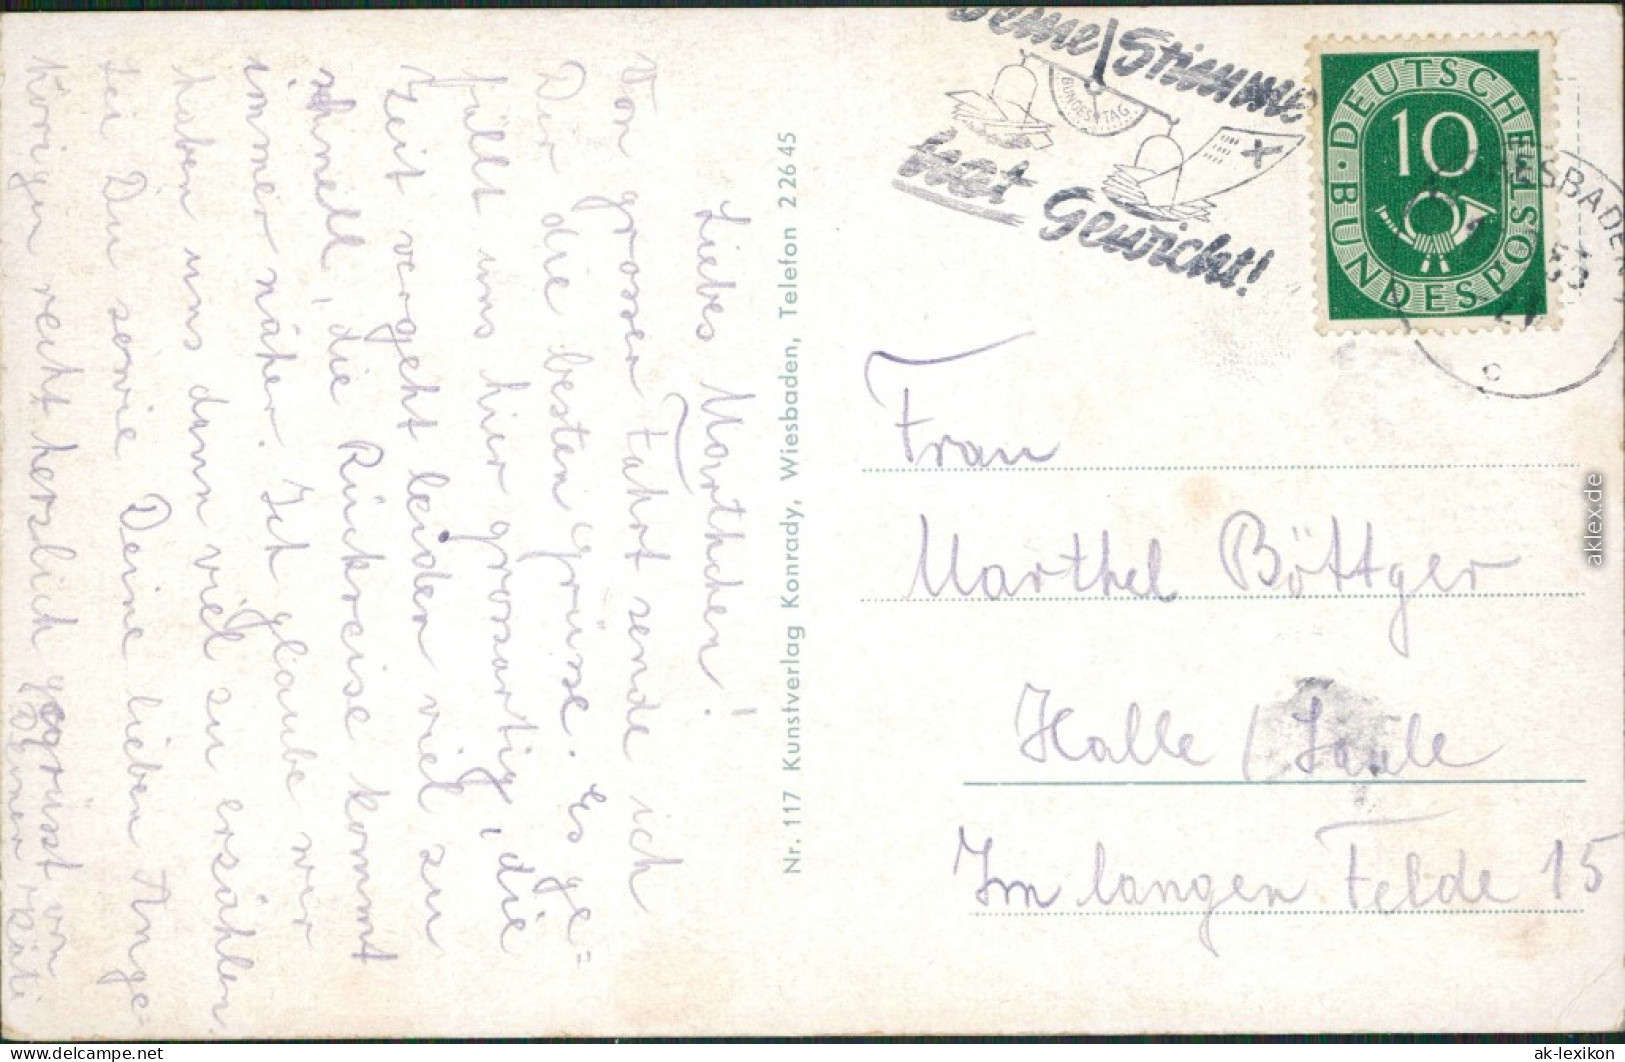 Liebes Marthchen!
Von grosser Fahrt sende ich
Dir die besten Grüsse. Es ge=
fällt uns hier grossartig, die
Zeit vergeht leider viel zu
schnell, die Rückreise kommt
immer näher. Ich glaube wir
haben uns dann viel zu erzählen.
Sei Du sowie Deine lieben Ange=
hörigen recht herzlich gegrüsst von
Deiner Käti
Nr. 117 Kunstverlag Konrady, Wiesbaden, Telefon 2 26 45
Deine Stimme
BUNDESTAG
hat Gewicht!
DEUTSCHE BUNDESPOST
10
WIESBADEN
Frau
Marthel Böttger
Halle / Saale
Im langen Felde 15
aklex.de
www.delcampe.net
ak-lexikon